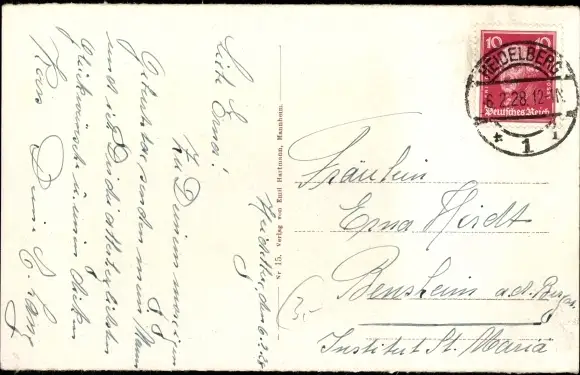 10 10
Deutsches Reich
HEIDELBERG
6.2.28.12-1N.
* 1 i
Nr 15. Verlag von Emil Hartmann, Mannheim.
den 6.2.28
Lieb Erna!
Zu Deinem morgigen
Geburtstag senden mein Mann
und ich Dir die allerherzlichsten
Glückwünsche u. einen dicken
Kuss Deine
Fräulein
Erna Hirdt
Bensheim a.d. Berg
Institut St. Maria